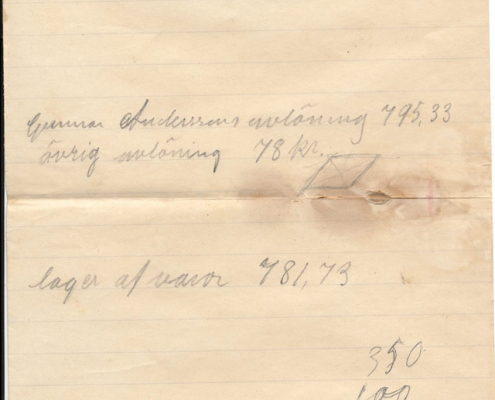 Gunnar Anderssons avlöning 795,33
övrig avlöning 78 kr.
lager af varor 781,73
350
100